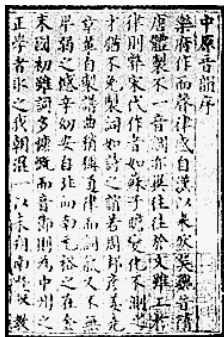 中原音韻序
樂府作而聲律盛自漢以來然矣魏晉隋
唐體製不一音調亦異往往於文雖工於
律則弊宋代作者如蘇子瞻變化不測之
才猶不免製詞如詩之誚若周邦彥姜堯
章輩自製譜曲稍稱通律而詞氣又不無
卑弱之憾辛幼安自北而南元裕之在金
末國初雖詞多慷慨而音節則為中州之
正學者取之我朝混一以來朔南暨聲教